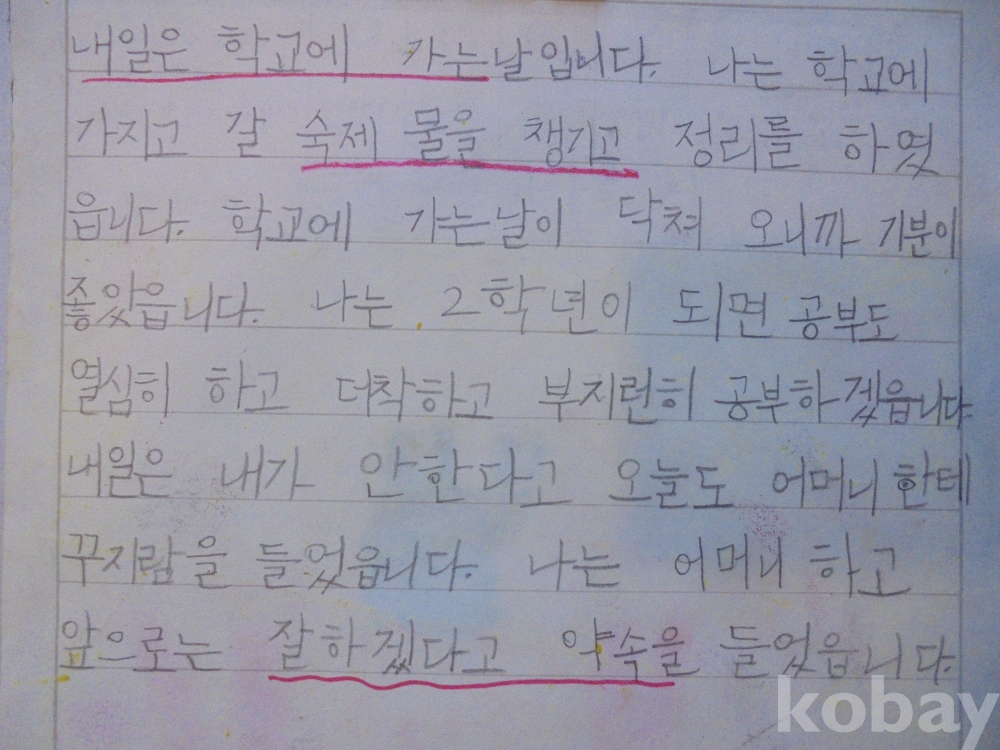 내일은 학교에 가는날입니다. 나는 학교에
가지고 갈 숙제 물을 챙기고 정리를 하였
읍니다. 학교에 가는날이 닥쳐 오니까 기분이
좋았읍니다. 나는 2학년이 되면 공부도
열심히 하고 더착하고 부지런히 공부하겠읍니다
내일은 내가 안한다고 오늘도 어머니한테
꾸지람을 들었읍니다. 나는 어머니 하고
앞으로는 잘하겠다고 약속을 들었읍니다.
kobay